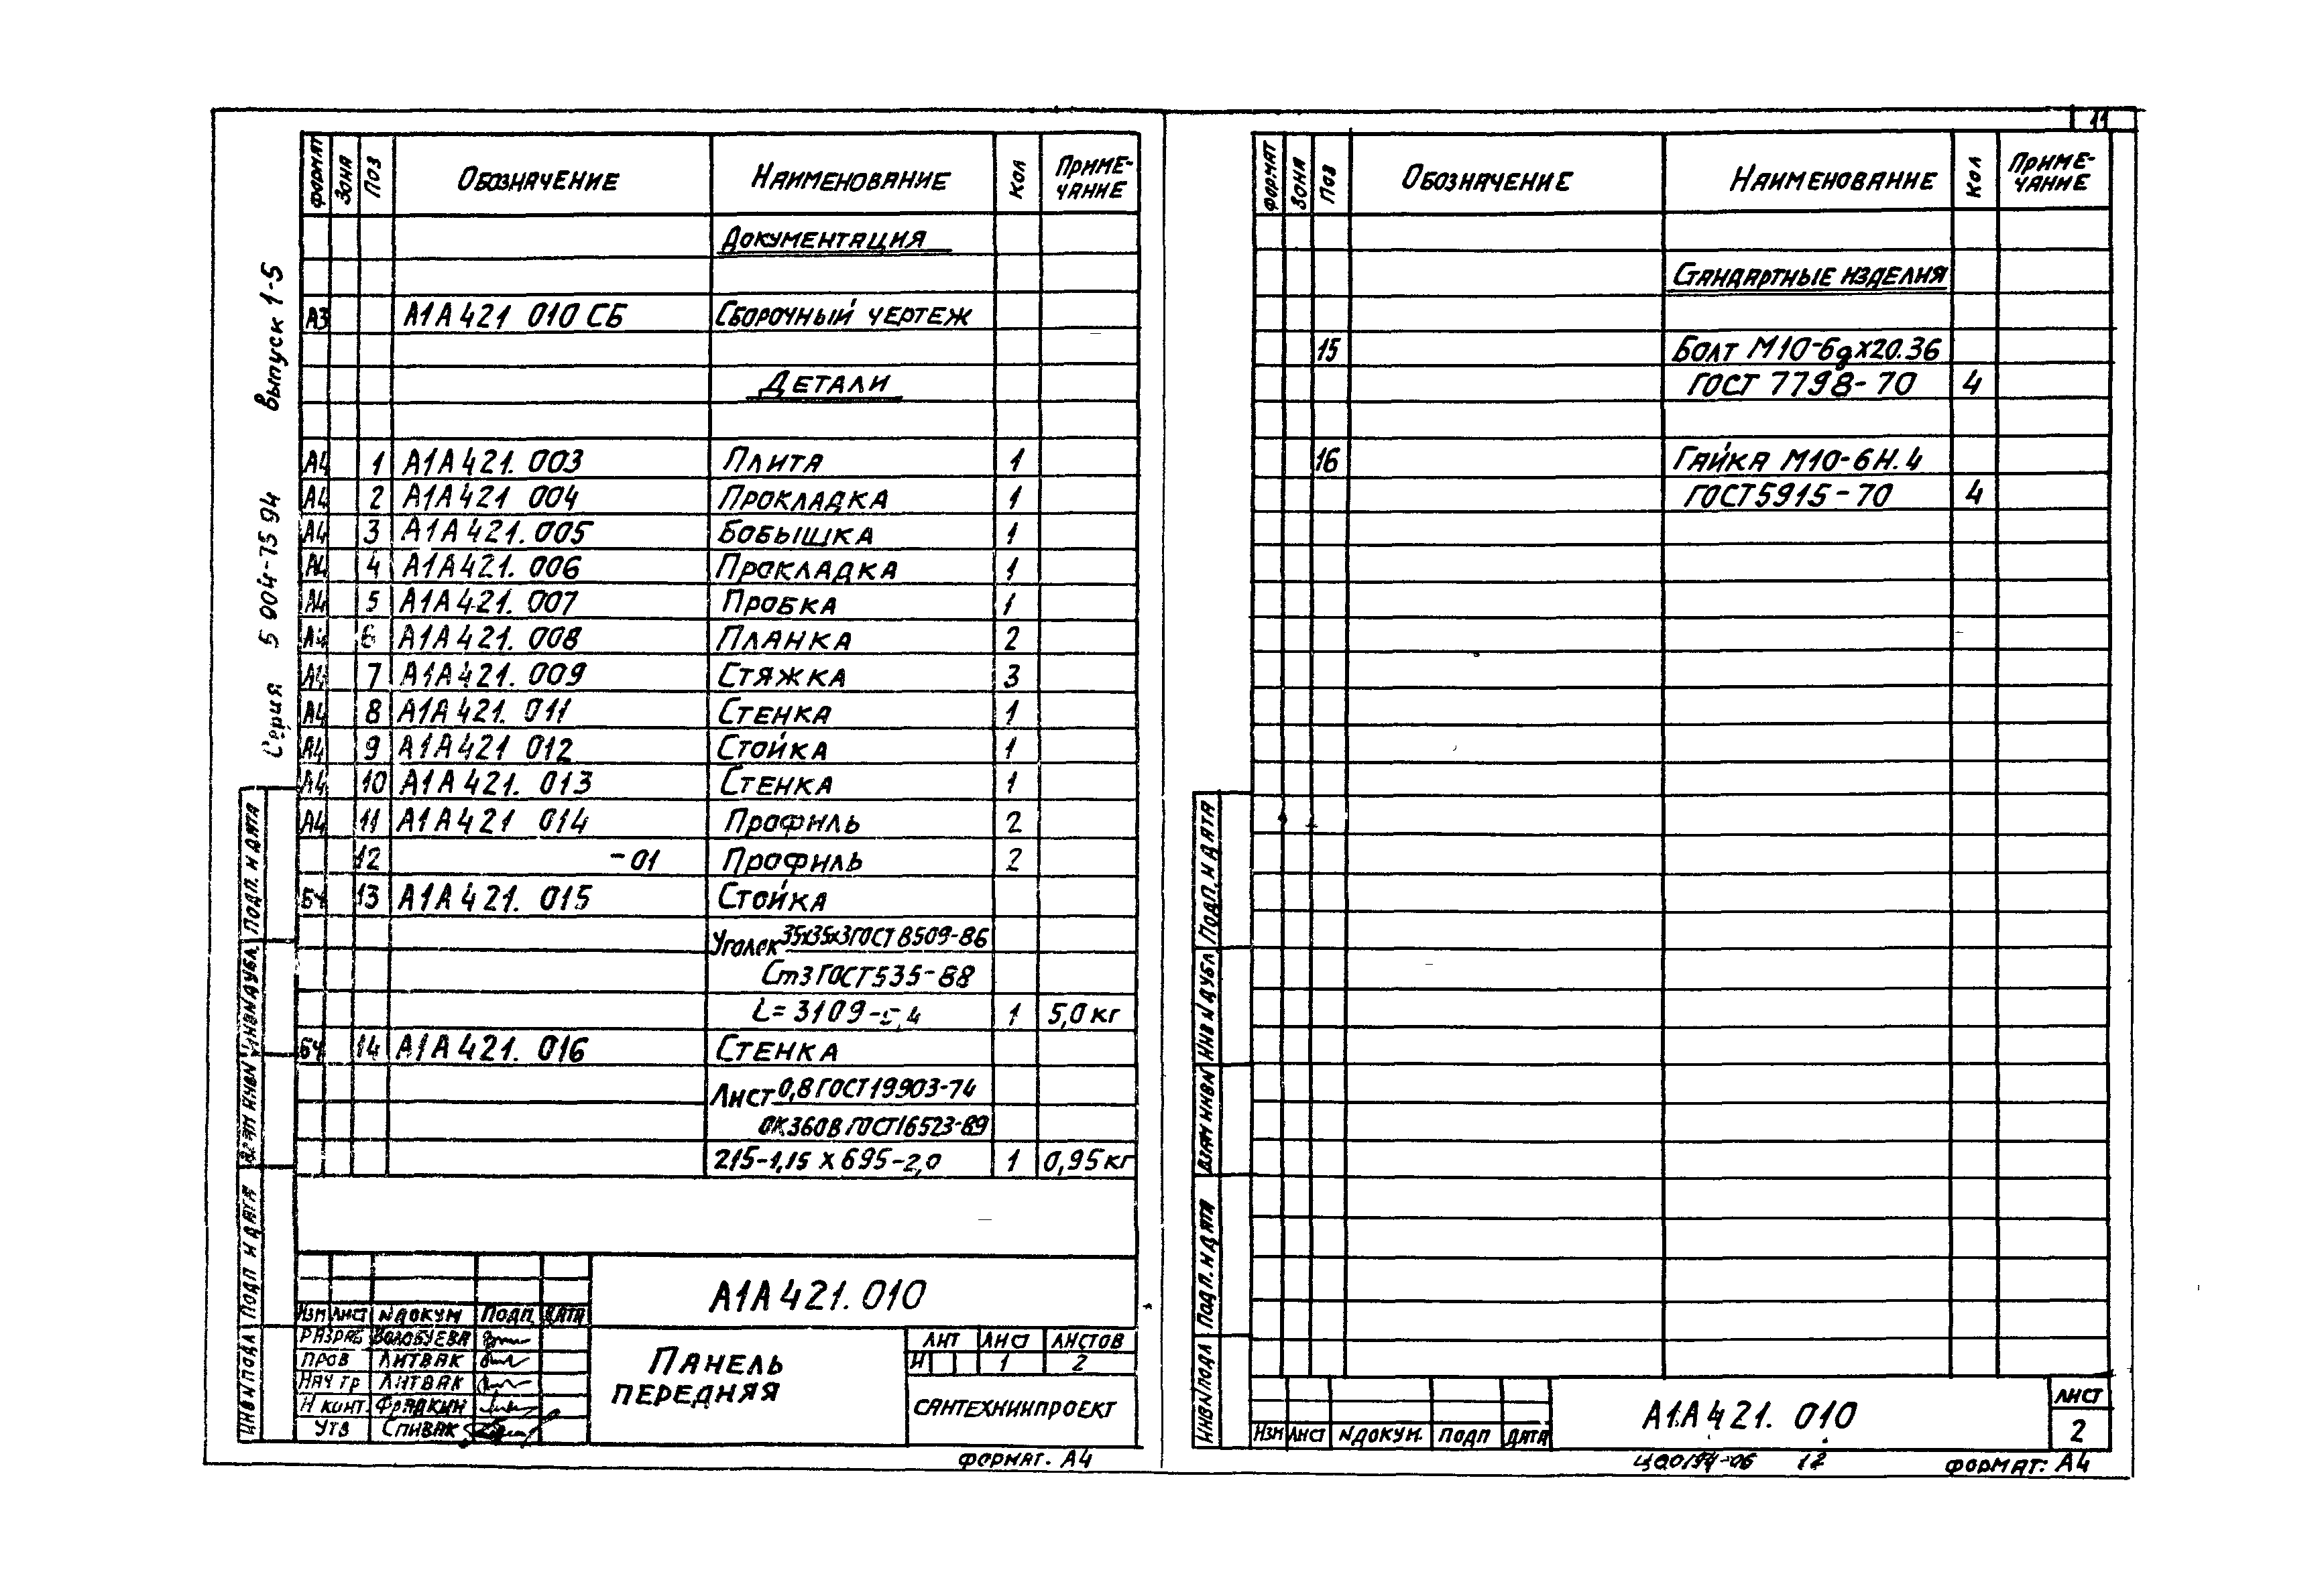 11
Серия 5 004-75 94 Выпуск 1-5
ФОРМАТ ЗОНА ПОЗ ОБОЗНАЧЕНИЕ НАИМЕНОВАНИЕ КОЛ ПРИМЕ-
ЧАНИЕ
ДОКУМЕНТАЦИЯ
А3 А1А421 010 СБ СБОРОЧНЫЙ ЧЕРТЕЖ
ДЕТАЛИ
А4 1 А1А421. 003 ПЛИТА 1
А4 2 А1А421 004 ПРОКЛАДКА 1
А4 3 А1А421. 005 БОБЫШКА 1
А4 4 А1А421. 006 ПРОКЛАДКА 1
А4 5 А1А421. 007 ПРОБКА 1
А4 6 А1А421. 008 ПЛАНКА 2
А4 7 А1А421. 009 СТЯЖКА 3
А4 8 А1А421. 011 СТЕНКА 1
А4 9 А1А421 012 СТОЙКА 1
А4 10 А1А421. 013 СТЕНКА 1
А4 11 А1А421 014 ПРОФИЛЬ 2
12 -01 ПРОФИЛЬ 2
БЧ 13 А1А421. 015 СТОЙКА
Уголок 35х35х3 ГОСТ 8509-86
Ст3 ГОСТ 535-88
L=3109- 1 5,0 кг
БЧ 14 А1А421. 016 СТЕНКА
Лист 0,8 ГОСТ 19903-74
ОК360В ГОСТ 16523-89
215-1,15 х 695-2,0 1 0,95 кг
ПОДП. И ДАТА
ИНВ N ДУБЛ
ВЗАМ ИНВ N
ПОДП И ДАТА
ИНВ N ПОДЛ
А1А421. 010
ИЗМ ЛИСТ N ДОКУМ ПОДП ДАТА
РАЗРАБ ВОЛОБУЕВА
ПРОВ ЛИТВАК
НАЧ ГР ЛИТВАК
Н КОНТ. ФРАДКИН
УТВ СПИВАК
ПАНЕЛЬ
ПЕРЕДНЯЯ
ЛИТ ЛИСТ ЛИСТОВ
И 1 2
САНТЕХНИИПРОЕКТ
ФОРМАТ. А4
ФОРМАТ ЗОНА ПОЗ ОБОЗНАЧЕНИЕ НАИМЕНОВАНИЕ КОЛ ПРИМЕ-
ЧАНИЕ
СТАНДАРТНЫЕ ИЗДЕЛИЯ
15 БОЛТ М10-6gх20.36
ГОСТ 7798-70 4
16 ГАЙКА М10-6Н.4
ГОСТ 5915-70 4
ПОДП. И ДАТА
ИНВ N ДУБЛ
ВЗАМ ИНВ N
ПОДП. И ДАТА
ИНВ N ПОДЛ
ИЗМ ЛИСТ N ДОКУМ. ПОДП ДАТА
А1А421. 010
ЛИСТ
2
12 ФОРМАТ: А4